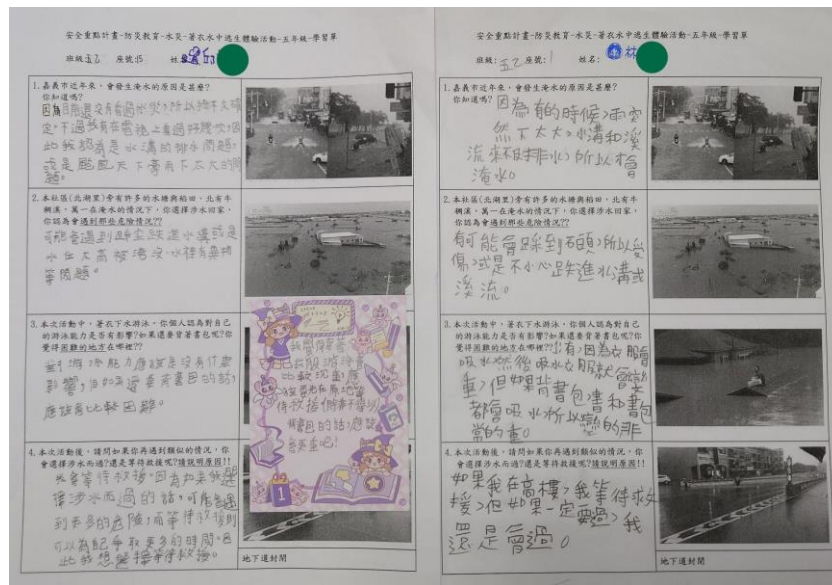 安全重點計畫-防災教育-水災-著衣水中逃生體驗活動-五年級-學習單
班級:五乙 座號:5 姓名:
1.嘉義市近年來，會發生淹水的原因是甚麼?
你知道嗎?
因為目前還沒有看過水災，所以我不太確
定。下過我有在電視上看過好幾次，因
此我認為是水溝的排水問題，
或是颱風天下豪雨下太大的問
題。
2.本社區(北湖里)旁有許多的水塘與稻田，北有牛
稠溪，萬一在淹水的情況下，你選擇涉水回家，
你認為會遇到那些危險情況??
可能會遇到踩空跌進水溝或是
水位太高被淹沒、水裡有異物
等問題。
3.本次活動中，著衣下水游泳，你個人認為對自己
的游泳能力是否有影響?如果還要背著書包呢?你
覺得困難的地方在哪裡??
對游泳能力應該是沒有什麼
影響，但如果還要背書包的話，
應該會比較困難。
4.本次活動後，請問如果你再遇到類似的情況，你
會選擇涉水而過?還是等待救援呢?請說明原因!!
我會等待救援，因為如果我選
擇涉水而過的話，可能會遇
到更多的危險，而等待救援則
可以為自己爭取更多的時間。因
此我想選擇等待救援。
地下道封閉
安全重點計畫-防災教育-水災-著衣水中逃生體驗活動-五年級-學習單
班級:五乙 座號:1 姓名:林
1.嘉義市近年來，會發生淹水的原因是甚麼?
你知道嗎?
因為有的時候，雨突
然下太大，水溝和溪
流來不及排水，所以才會
淹水。
2.本社區(北湖里)旁有許多的水塘與稻田，北有牛
稠溪，萬一在淹水的情況下，你選擇涉水回家，
你認為會遇到那些危險情況??
有可能會踩到石頭，所以受
傷，或是不小心跌進水溝或
溪流。
3.本次活動中，著衣下水游泳，你個人認為對自己
的游泳能力是否有影響?如果還要背著書包呢?你
覺得困難的地方在哪裡??
有，因為衣服會
吸水然後吸水衣服就會變
重，但如果背書包，書和書包
都會吸水所以變的非
常的重。
4.本次活動後，請問如果你再遇到類似的情況，你
會選擇涉水而過?還是等待救援呢?請說明原因!!
如果我在高樓，我等待救
援，但如果一定要過，我
還是會過。
地下道封閉